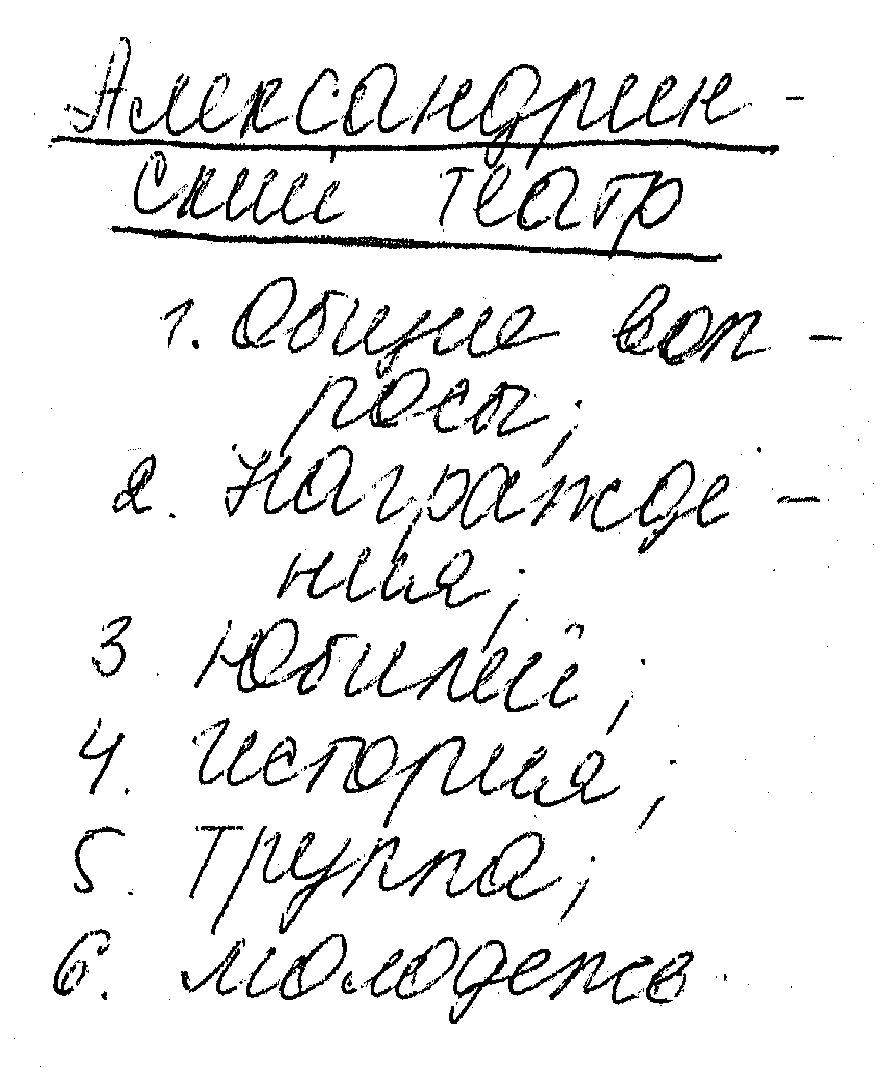 Александрин-
ский театр
1. Общие воп-
росы;
2. Награжде-
ния;
3. Юбилей;
4. История;
5. Труппа;
6. Молодежь.